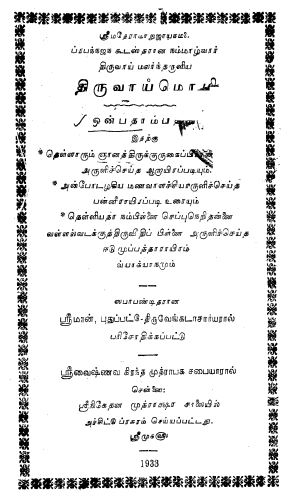 ஸ்ரீமதேராமாநுஜாயநம:
ப்ரபந்நஜந கூடஸ்தரான நம்மாழ்வார்
திருவாய் மலர்ந்தருளிய
திருவாய்மொழி
ஒன்பதாம்ப
இதற்கு
* தெள்ளாரும் ஞானத்திருக்குருகைப்பிரான்
அருளிச்செய்த ஆறாயிரப்படியும்
* அன்போடழகிய மணவாளச்சீயரருளிச்செய்த
பன்னீராயிரப்படி உரையும்
* தெள்ளியதா நம்பிள்ளை செப்புநெறிதன்னை
வள்ளல்வடக்குத்திருவீதிப் பிள்ளை அருளிச்செய்த
ஈடு முப்பத்தாறாயிரம்
வ்யாக்யாநமும்
ஸபாபண்டிதரான
ஸ்ரீமான், புதுப்பட்டு-திருவேங்கடாசார்யரால்
பரிசோதிக்கப்பட்டு
ஸ்ரீவைஷ்ணவ கிரந்த முத்ராபக சபையாரால்
சென்னை:
ஸ்ரீநிகேதன முத்ராக்ஷர சாலையில்
அச்சிட்டு ப்ரசுரம் செய்யப்பட்டது.
ஸ்ரீமுக
1933